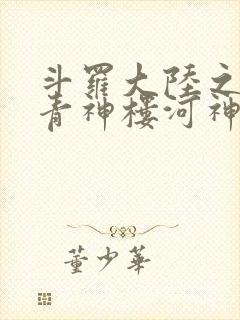 斗羅大陸之
青神樓河神
董少華